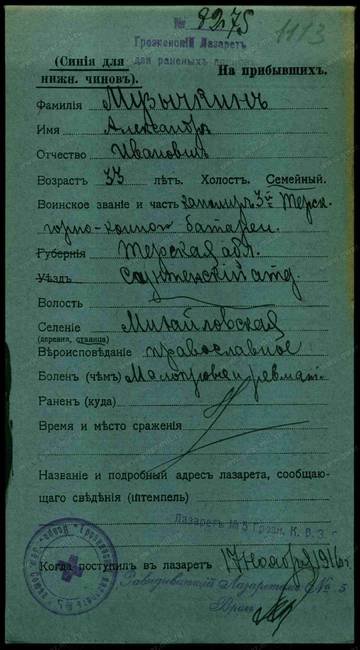 № 92175
1113
Грозненскій Лазаретъ
для раненыхъ
(Синія для
нижн. чиновъ).
На прибывшихъ.
Фамилія Музычкинъ
Имя Александръ
Отчество Ивановичъ
Возрастъ 33 лѣтъ. Холост. Семейный.
Воинское званіе и часть 3й Терск.
горно-конной батареи
Губернія Терская обл.
Уѣздъ Сунженскій отд.
Волость
Селеніе Михайловская
(деревня, станица)
Вѣроисповѣданіе православное
Боленъ (чѣмъ) Малокровіе и ревмат.
Раненъ (куда)
Время и мѣсто сраженія
Названіе и подробный адресъ лазарета, сообщаю-
щаго свѣдѣнія (штемпель)
Лазаретъ № 5 Грозн. К.
Когда поступилъ въ лазаретъ 17 Ноября 1916 г.
Завѣдывающій Лазаретомъ № 5
Врачъ